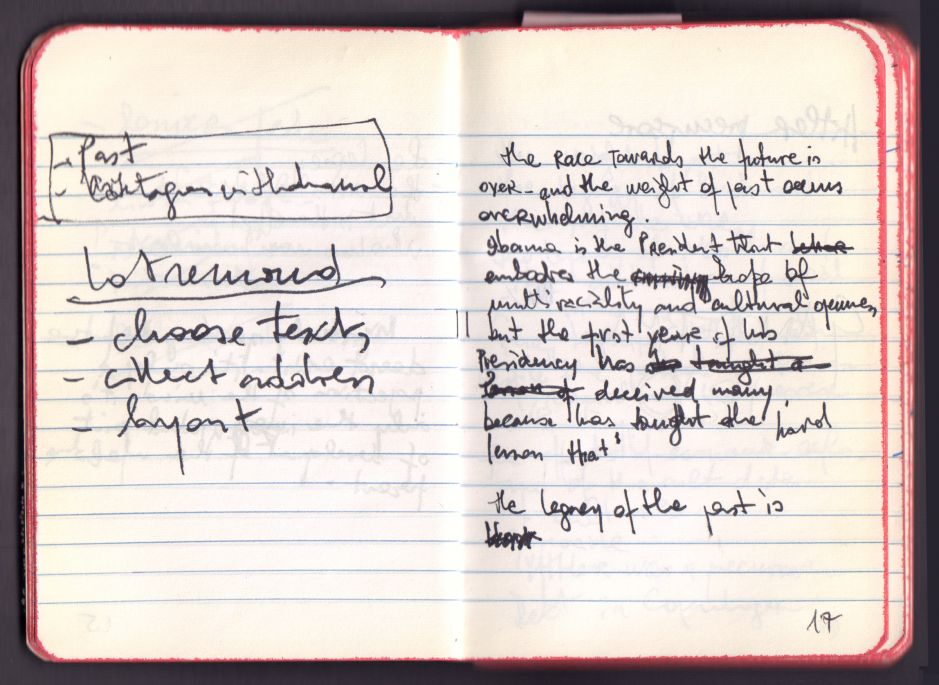 - Past
- withdrawal
Lotremond
- choose texts
- collect address
- layout
the Race Towards the future is
over - and the weight of past seems
overwhelming.
Obama is the President that
embodies the hope of
multiraciality and cultural openness,
but the first year of his
Presidency has
deceived many,
because has taught the hard
lesson that:
the legacy of the past is
17